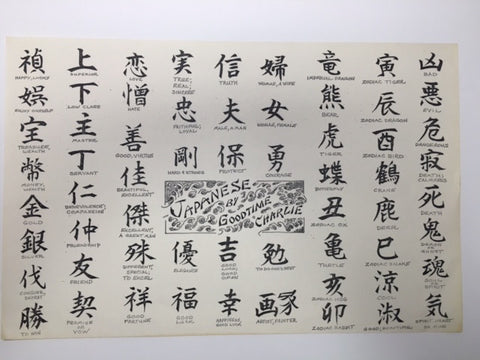 禎
HAPPY, LUCKY
娯
ENJOY ONESELF
宝
TREASURE,
WEALTH
幣
MONEY,
WEALTH
金
GOLD
銀
SILVER
伐
CONQUER,
DEFEAT
勝
TO WIN
上
SUPERIOR
下
LOW CLASS
主
MASTER
丁
SERVANT
仁
BENEVOLENCE,
仲
FRIENDSHIP
友
FRIEND
契
PROMISE OR
VOW
恋
LOVE
憎
HATE
善
GOOD, VIRTUE
佳
BEAUTIFUL,
EXCELLENT
傑
EXCELLENT,
A GREAT MAN
殊
DIFFERENT,
SPECIAL,
TO EXCEL
祥
GOOD
FORTUNE
実
TRUE,
REAL,
SINCERE
忠
FAITHFUL,
LOYAL
剛
HARD & STRONG
JAPANESE
BY
GOODTIME
CHARLIE
優
ELEGANCE
福
GOOD
LUCK
信
TRUTH
夫
MALE, A MAN
保
PROTECT
吉
GOOD LUCK,
GOOD OMEN
幸
HAPPINESS,
GOOD LUCK
婦
WOMAN, A WIFE
女
WOMAN, FEMALE
勇
COURAGE
勉
TO DO ONE'S BEST
画家
ARTIST, PAINTER
竜
IMPERIAL DRAGON
熊
BEAR
虎
TIGER
蝶
BUTTERFLY
丑
ZODIAC OX
亀
TURTLE
亥
ZODIAC HOG
卯
ZODIAC RABBIT
寅
ZODIAC TIGER
辰
ZODIAC DRAGON
酉
ZODIAC BIRD
鶴
CRANE
鹿
DEER
巳
ZODIAC SNAKE
涼
COOL
淑
GOOD, BEAUTIFUL
凶
BAD
悪
EVIL
危
DANGEROUS
寂
DEATH,
CALMNESS
死
DEATH
鬼
DEMON OR
GHOST
魂
SOUL
気
SPIRIT, HEART
OR MIND